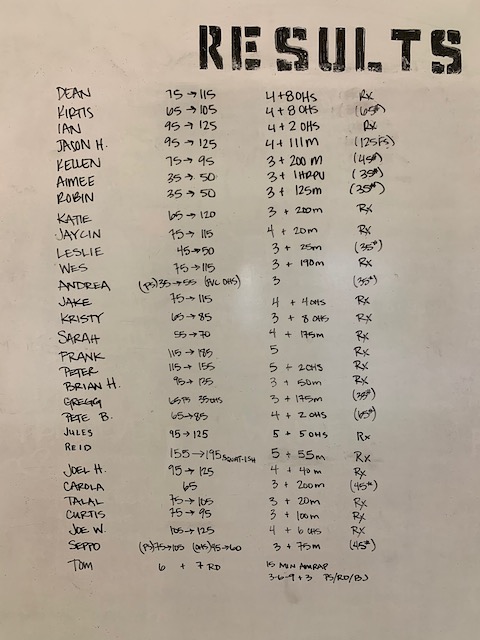 RESULTS
DEAN 75→115 4+8OHS Rx
KIRTIS 65→105 4+8 OHS (65#)
IAN 95→125 4+2 OHS Rx
JASON H. 95→125 4+111m (125FS)
KELLEN 75→95 3+200 m (45#)
AIMEE 35→50 3+1HRPU (35#)
ROBIN 35→50 3+125m (35#)
KATIE 65→120 3 + 200m Rx
JAYCIN 75→115 4 + 20m Rx
LESLIE 45→50 3 + 25m (35#)
WES 75→115 3 + 190m Rx
ANDREA (PS)35→55 (PVC OHS) 3 (35#)
JAKE 75→115 4 + 4OHS Rx
KRISTY 65→85 3 + 8 OHS Rx
SARAH 55→70 4 + 175m Rx
FRANK 115→185 5 Rx
PETER 115→155 5 + 2OHS Rx
BRIAN H. 95→135 3 + 50m Rx
GREGG 65PS 35OHS 3+175m (35#)
PETE B. 65→85 4 + 2 OHS (65#)
JULES 95→125 5 + 5OHS Rx
REID 155→195 SQUAT-ISH 5 + 55m Rx
JOEL H. 95→125 4 + 40m Rx
CAROLA 65 3 + 200m (45#)
TALAL 75→105 3 + 20m Rx
CURTIS 75→95 3 + 100m Rx
JOE W. 105→125 4 + 6 OHS Rx
SEPPO (PS)75→105 (OHS)45→60 3 + 75m (45#)
TOM 6 + 7 RD 15 MIN AMRAP
3-6-9+3 PS/RD/BJ